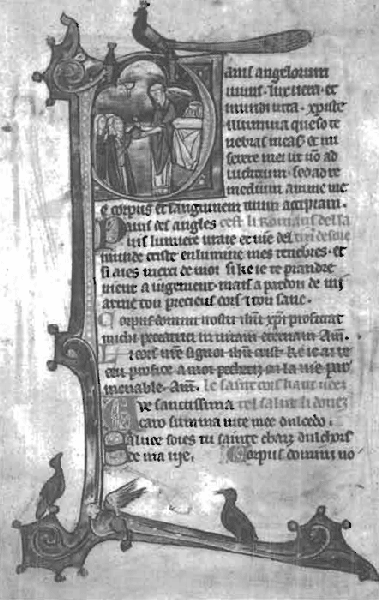 anis angelorum
uiuus. lux uera. et
mundi uita. xpiste
illumina queso te
nebras meas. et mi
serere mei ut nō ad
iudicium. sed ad re
medium anime me
e corpus et sanguinem tuum accipiam.
Pains des angles cest li Romans del sa
uis lumiere uraie et uie del
munde criste enlumine mes tenebres. et
si aies merci de moi si ke ie te prandre
uieue a iugement. mais a pardon de mi
arme ton precieus cors
Corpus domini nostri ihū xp̄i proficiat
michi peccatrici in uitam eternam Am̄.
Li cors nr̄e signor ihū crist ke ie ai re
ceu profice a moi pecheriz on la uie par
meuable. Am̄. le saint cors
Aue sanctissima cel salut li donez
caro summa uite mee dulcedo.
Salue soies tu sainte chars dulchors
de ma uie. Corpus domini no